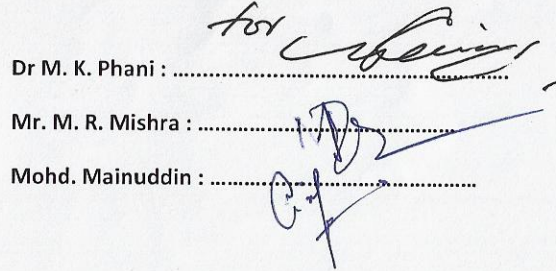 for
Dr M. K. Phani : ..................................................
Mr. M. R. Mishra : ..................................................
Mohd. Mainuddin : ..................................................